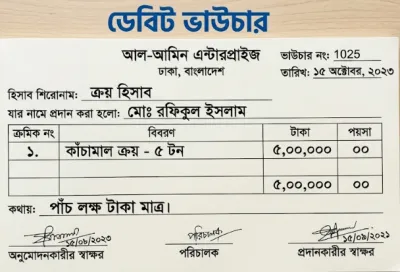 ডেবিট ভাউচার
আল-আমিন এন্টারপ্রাইজ
ভাউচার নং: 1025
ঢাকা, বাংলাদেশ
তারিখ: ১৫ অক্টোবর, ২০২৩
হিসাব শিরোনাম: ক্রয় হিসাব
যার নামে প্রদান করা হলো: মোঃ রফিকুল ইসলাম
ক্রমিক নং বিবরণ টাকা পয়সা
১. কাঁচামাল ক্রয় - ৫ টন ৫,০০,০০০ ০০
৫,০০,০০০ ০০
কথায়: পাঁচ লক্ষ টাকা মাত্র।
পরিচালক
অনুমোদনকারীর স্বাক্ষর পরিচালক প্রদানকারীর স্বাক্ষর